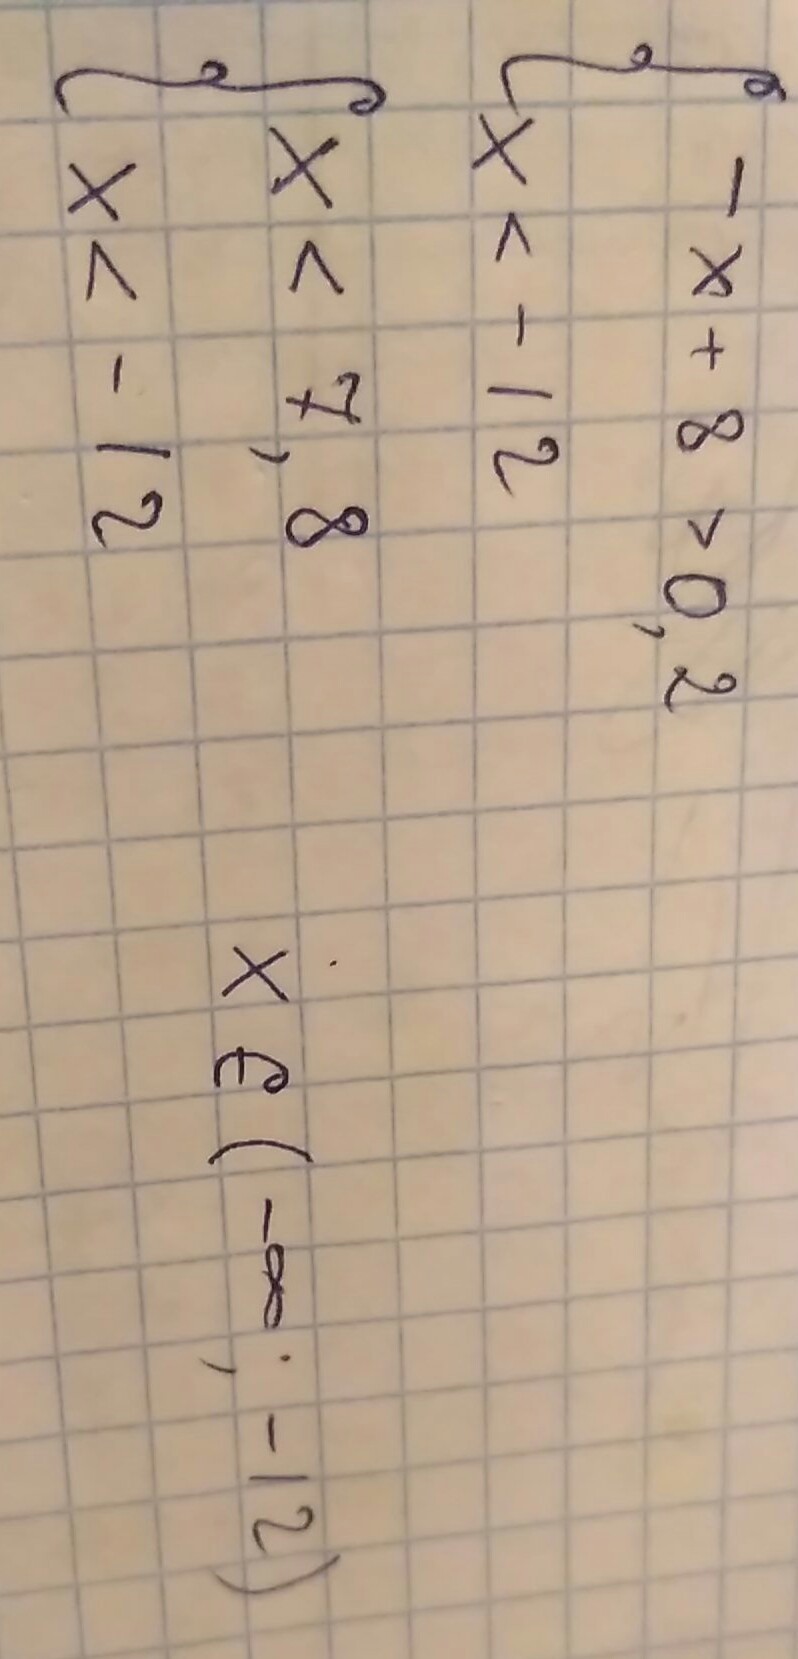 -x + 8 > 0,2
x < -12
x < 7,8
x < -12
x ∈ (-∞; -12)